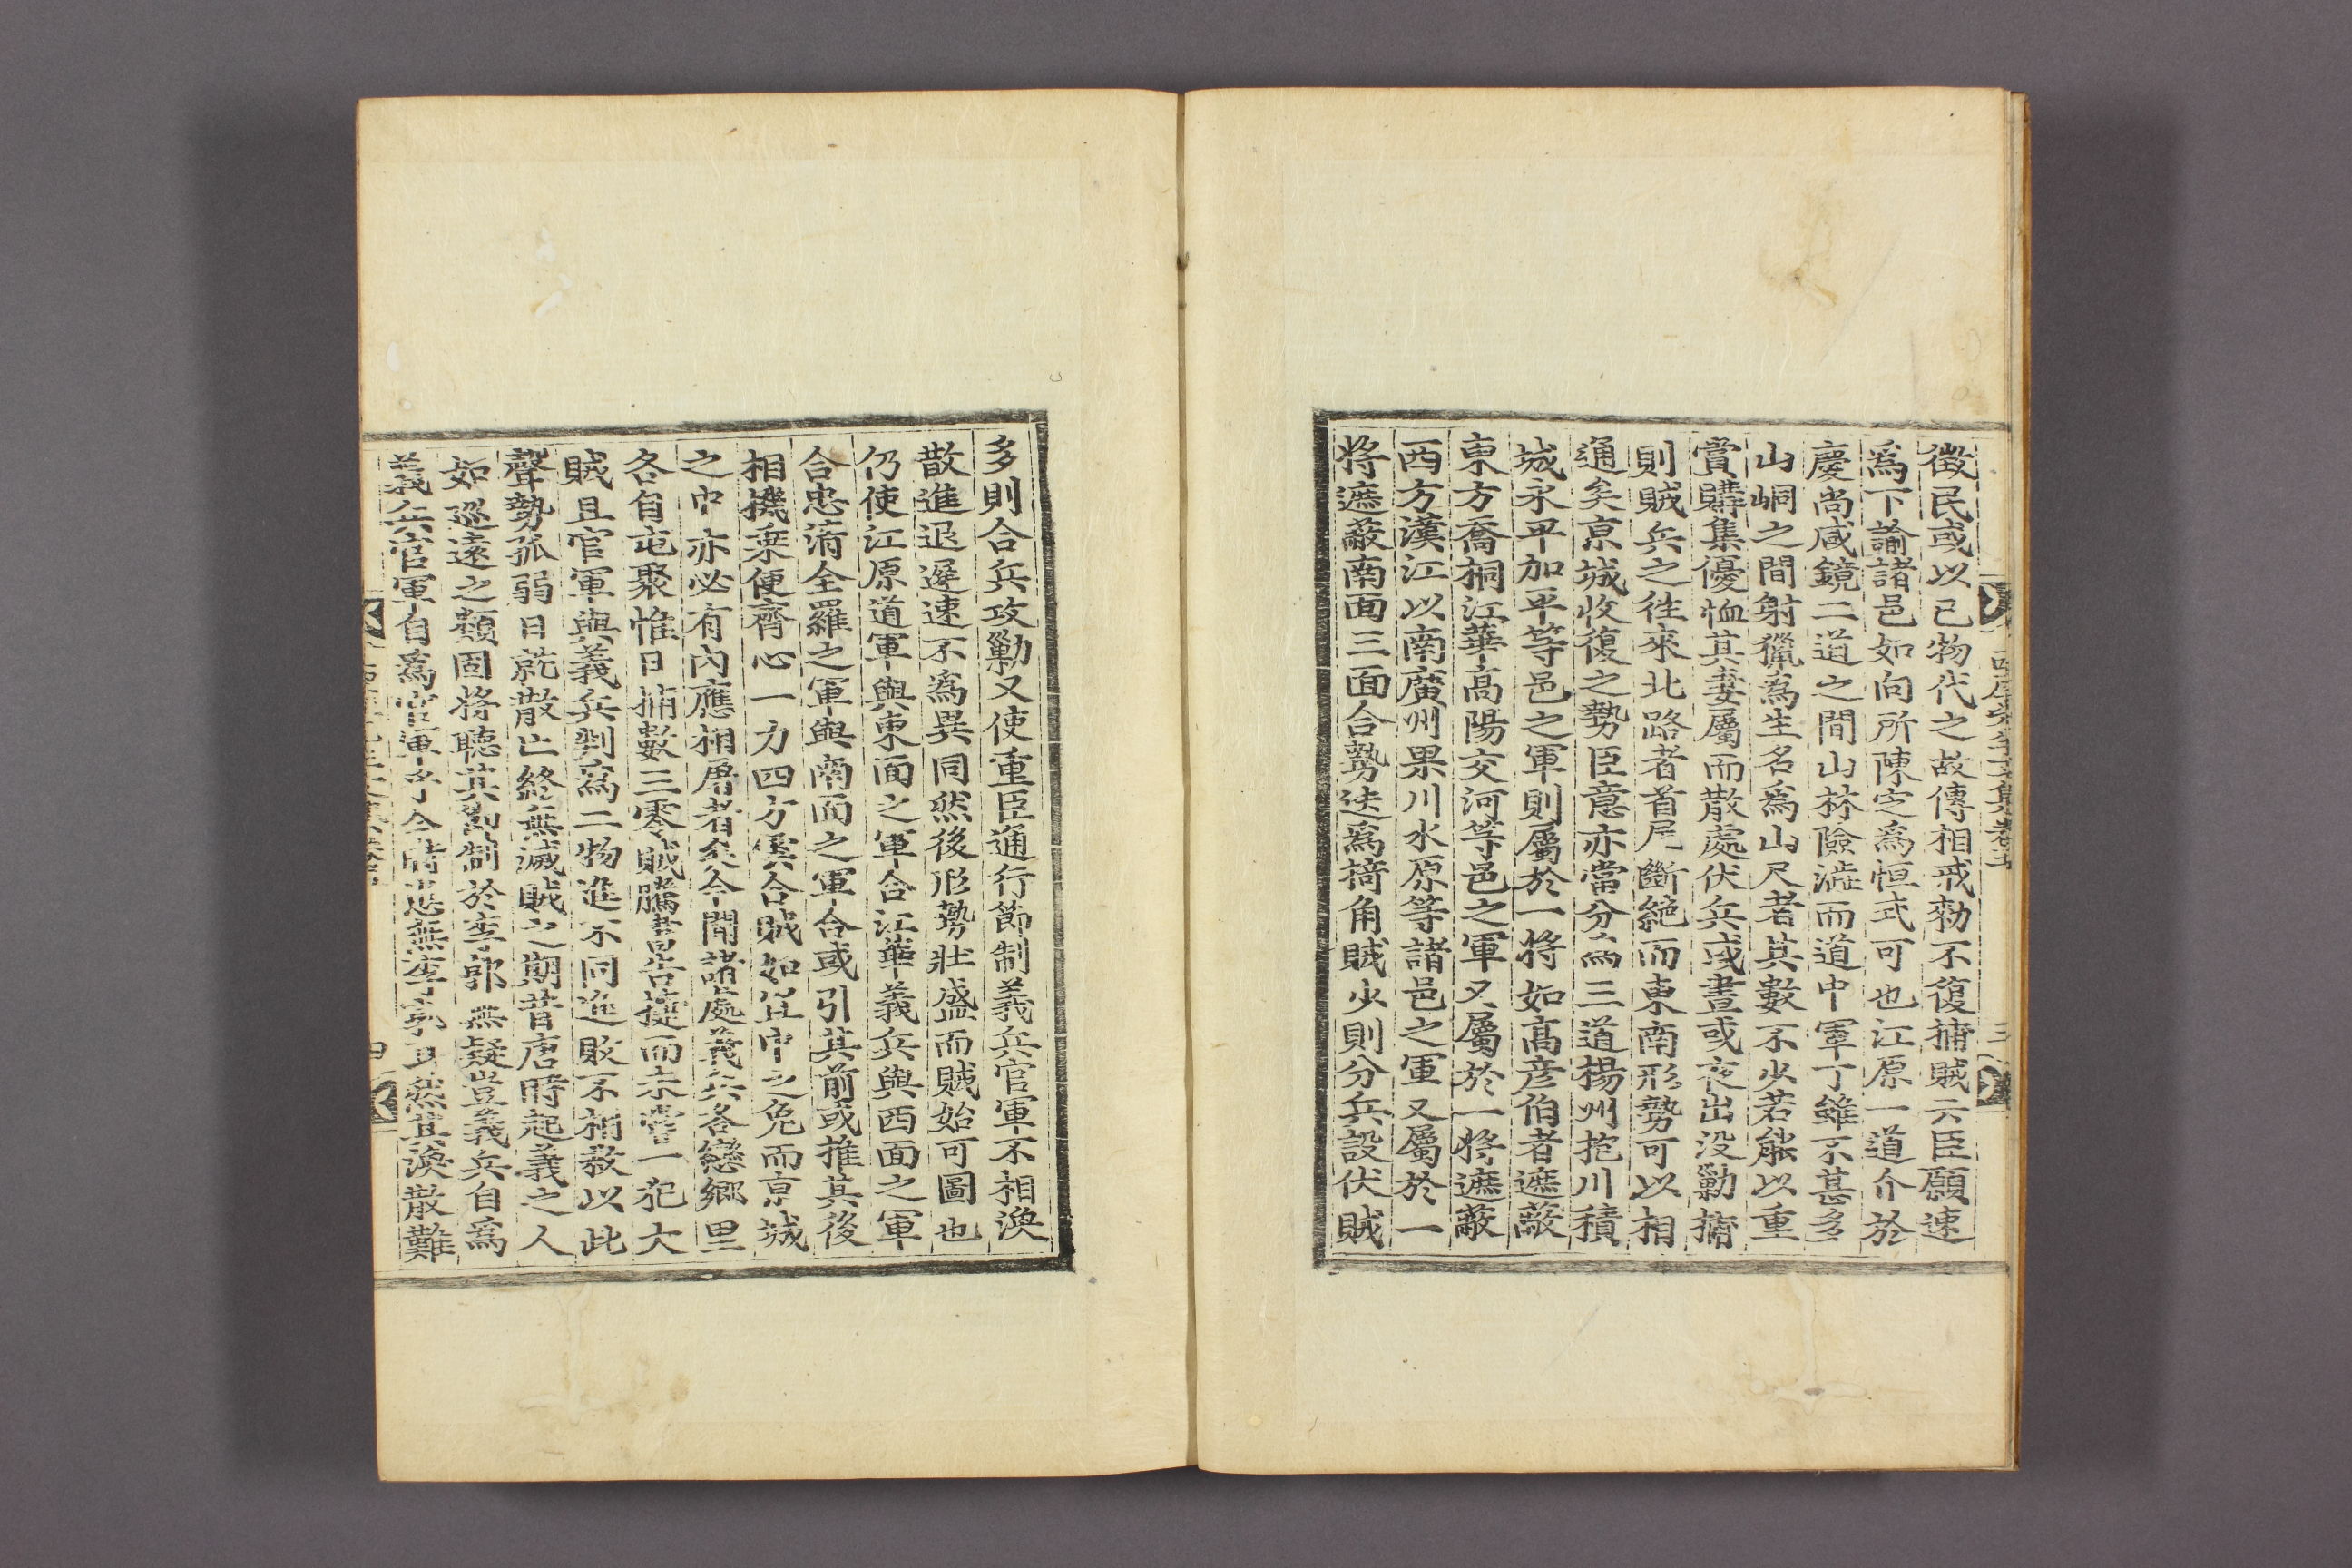 徵民或以已物代之故傳相戒勑不復捕賊云臣願速
爲下諭諸邑如向所陳定爲恒式可也江原一道介於
慶尚咸鏡二道之間山林險澁而道中軍丁雖不甚多
山峒之間射獵爲生名爲山尺者其數不少若能以重
賞購集優恤其妻屬而散處伏兵或晝或夜出没勦捕
則賊兵之徃來北路者首尾斷絶而東南形勢可以相
通矣京城收復之勢臣意亦當分爲三道楊州抱川積
城永平加平等邑之軍則屬於一將如高彦伯者遮蔽
東方喬桐江華高陽交河等邑之軍又屬於一將遮蔽
西方漢江以南廣州果川水原等諸邑之軍又屬於一
將遮蔽南面三面合勢迭爲掎角賊少則分兵設伏賊
西厓先生文集卷五
三
多則合兵攻勦又使重臣通行節制義兵官軍不相渙
散進退遲速不爲異同然後形勢壯盛而賊始可圖也
仍使江原道軍與東面之軍合江華義兵與西面之軍
合忠淸全羅之軍與南面之軍合或引其前或推其後
相機乗便齊心一力四方雲合賊如㞷中之兔而京城
之中亦必有内應相屠者矣今聞諸處義兵各戀鄉里
各自屯聚惟日捕數三零賊騰書告捷而未嘗一犯大
賊且官軍與義兵判爲二物進不同進敗不相救以此
聲勢孤弱日就散亡終無滅賊之期昔唐時起義之人
如巡遠之類固將聽其節制於李郭無疑豈義兵自爲
義兵官軍自爲官軍乎今時恐無李郭耳然其渙散難
四